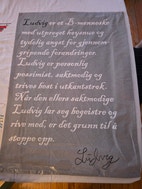 Ludvig er et B-menneske
med utpreget høysnue og
tydelig angst for gjennom-
gripende forandringer.
Ludvig er personlig
pessimist, saktmodig og
trives best i utkantstrøk.
Når den ellers saktmodige
Ludvig lar seg begeistre og
rive med, er det grunn til å
stoppe opp.
Ludvig